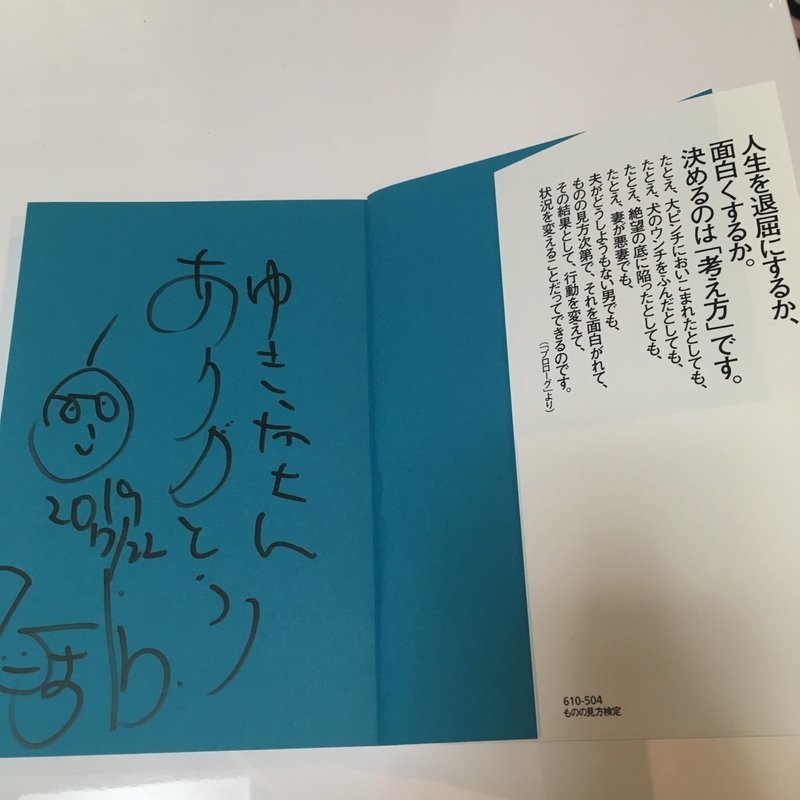 人生を退屈にするか、
面白くするか。
決めるのは「考え方」です。
たとえ、大ピンチにおいこまれたとしても、
たとえ、犬のウンチをふんだとしても、
たとえ、絶望の底に陥ったとしても、
たとえ、妻が悪妻でも、
夫がどうしようもない男でも、
ものの見方次第で、それを面白がれて、
その結果として、行動を変えて、
状況を変えることだってできるのです。
(「プロローグ」より)
610-504
ものの見方検定
ゆきなさん
ありがとう
2019
12/22